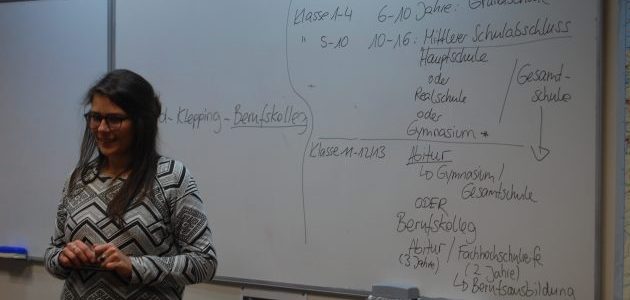 Klasse 1-4 6-10 Jahre: Grundschule
" 5-10 10-16: Mittlerer Schulabschluss
Hauptschule
oder
Realschule
oder
Gymnasium *
/ Gesamt-
schule
Klepping - Berufskolleg
Klasse 11-12/13 Abitur
↳ Gymnasium /
Gesamtschule
ODER
Berufskolleg
Abitur / Fachhochschulreife
(3 Jahre) (2 Jahre)
↳ Berufsausbildung